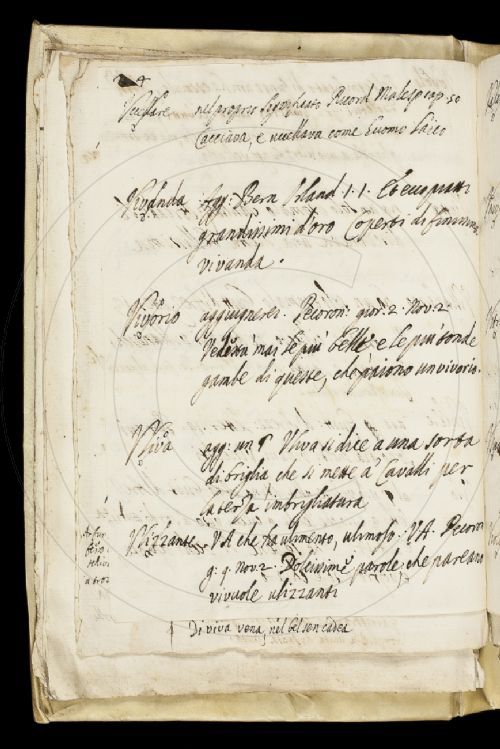 nel proprio Ricord Malesp cap. 50
Cacciava, e uccellava come huomo laico
Vivanda Agg: Bern Orland. 1. 1. Et ecco piatti
grandissimi d'oro Coperti di finissima
vivanda.
Vivorio aggiugnerei. Pecoron: gior: 2. Nov. 2.
Vedestù mai le più belle e le più tonde
gambe di queste, che paiono un vivorio.
Viva agg: un ¶ Viva si dice a una sorta
di briglia che si mette a Cavalli per
la terza imbrigliatura
Ulizzante. VA che ha ulimento, ulimoso. VA. Pecoron
g: 9. Nov. 2. Dolcissime parole, che pareano
vivuole ulizzanti
¶ Di viva vena, nel bel sen cadea